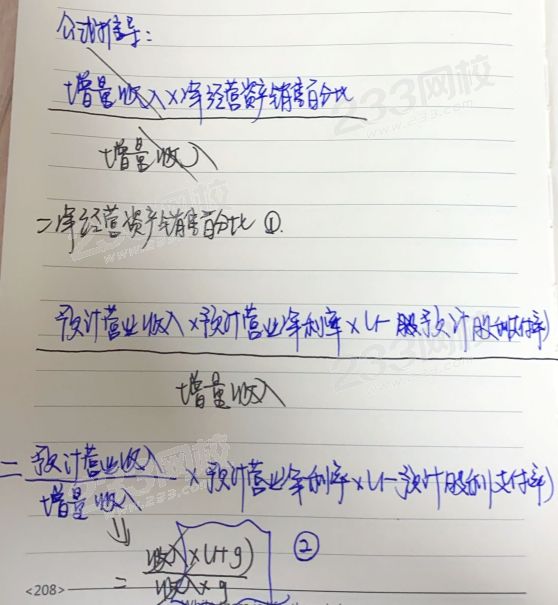 公式推导:
增量收入×净经营资产销售百分比
增量收入
=净经营资产销售百分比 ①.
预计营业收入×预计营业净利率×(1-预计股利支付率)
增量收入
=预计营业收入
增量收入
×预计营业净利率×(1-预计股利支付率)
收入×(1+g)
②
=
收入×g
<208>
233网校
www.233.com